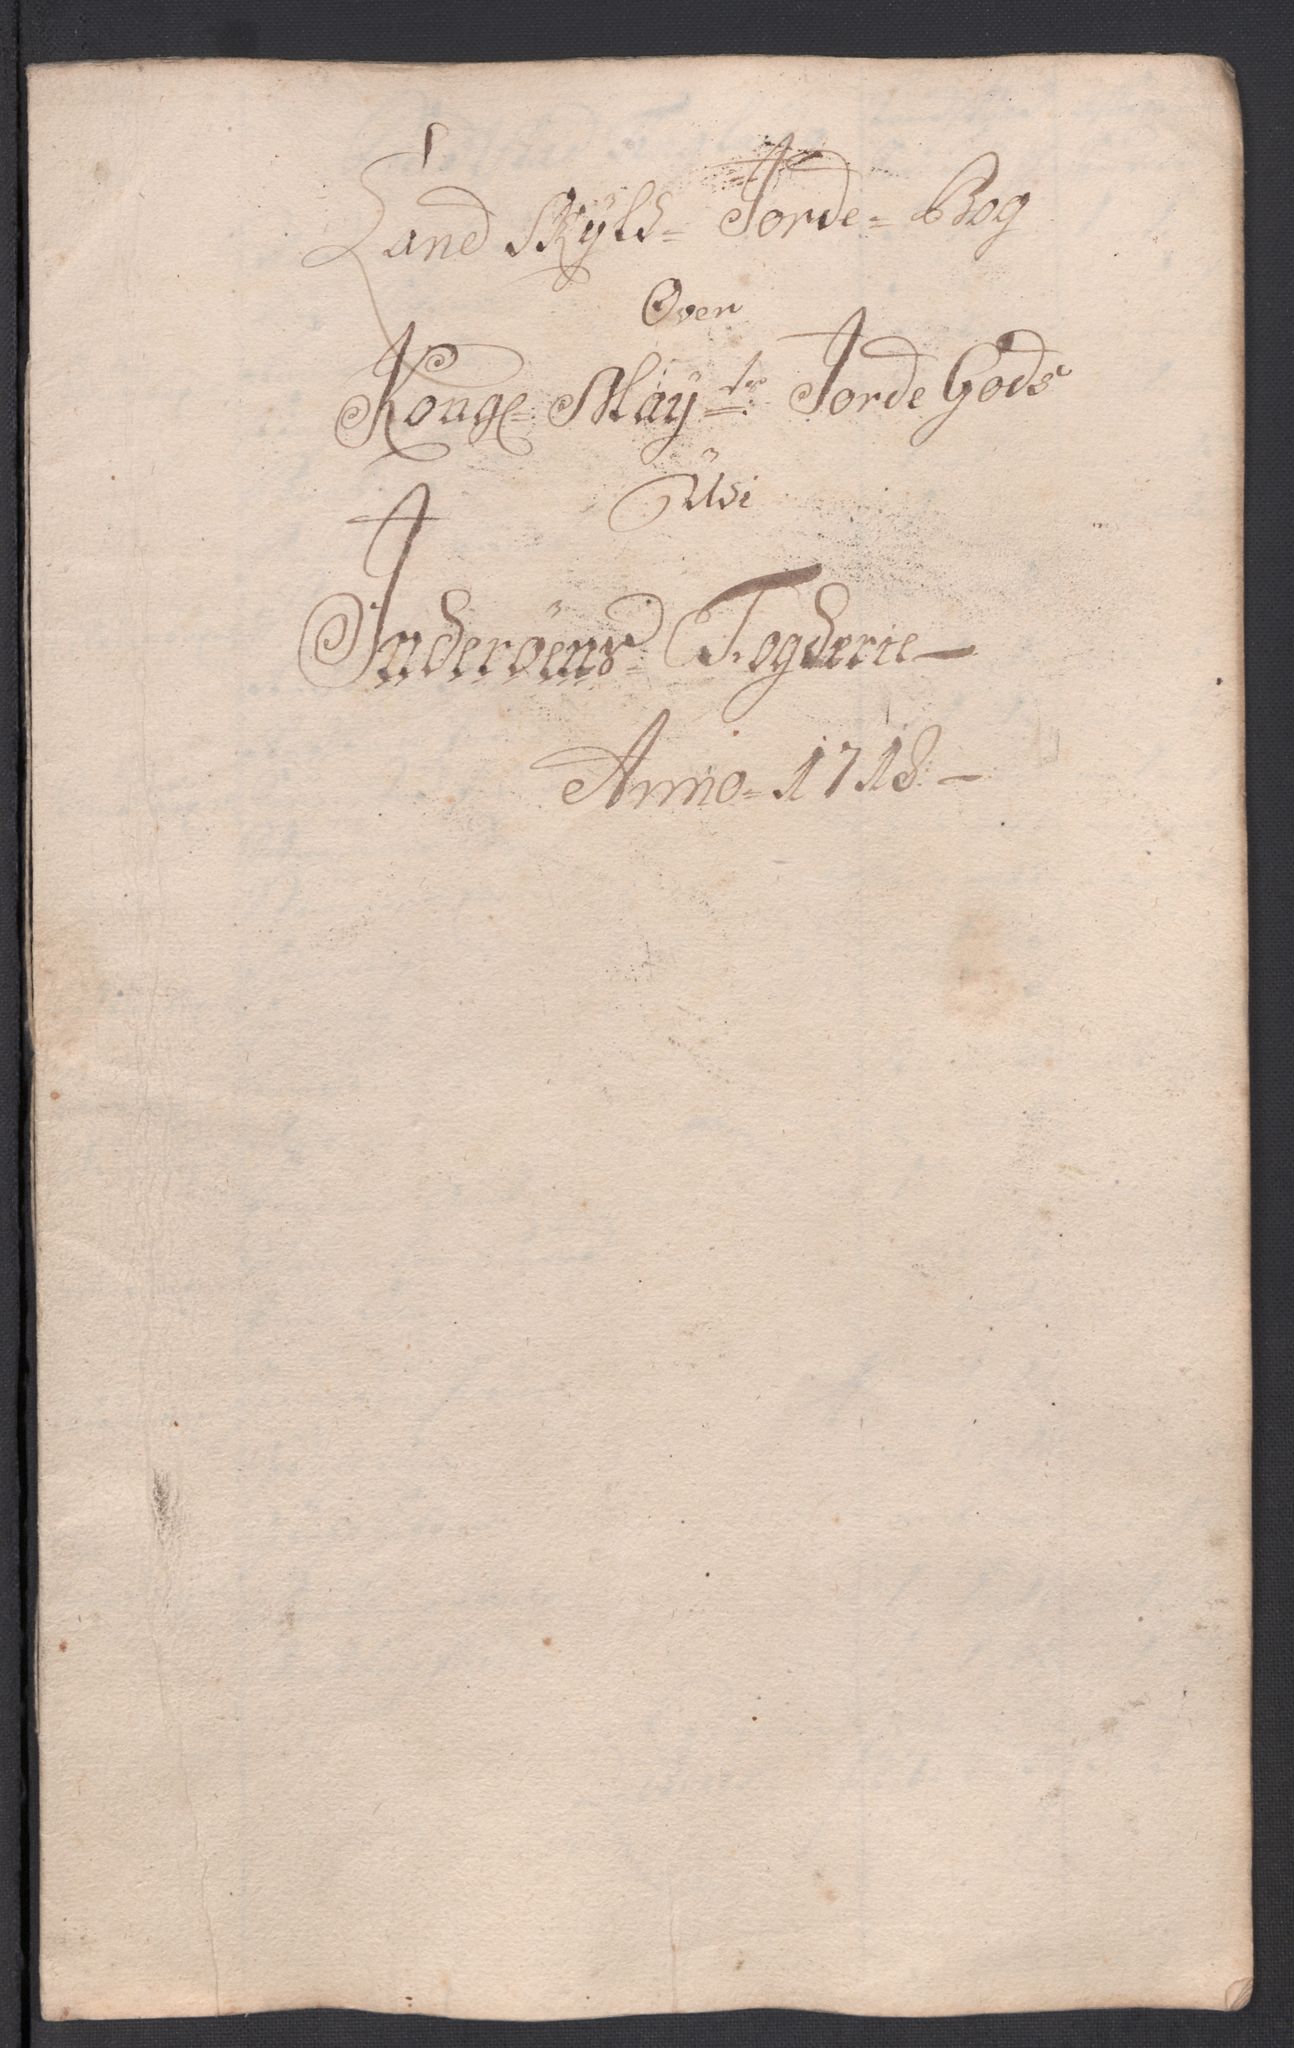 Land Skÿld= Jorde= Bog
Over
Kongl. Maÿ.ts Jorde Gods
Udi
Inderøens Fogderie
Anno= 1718